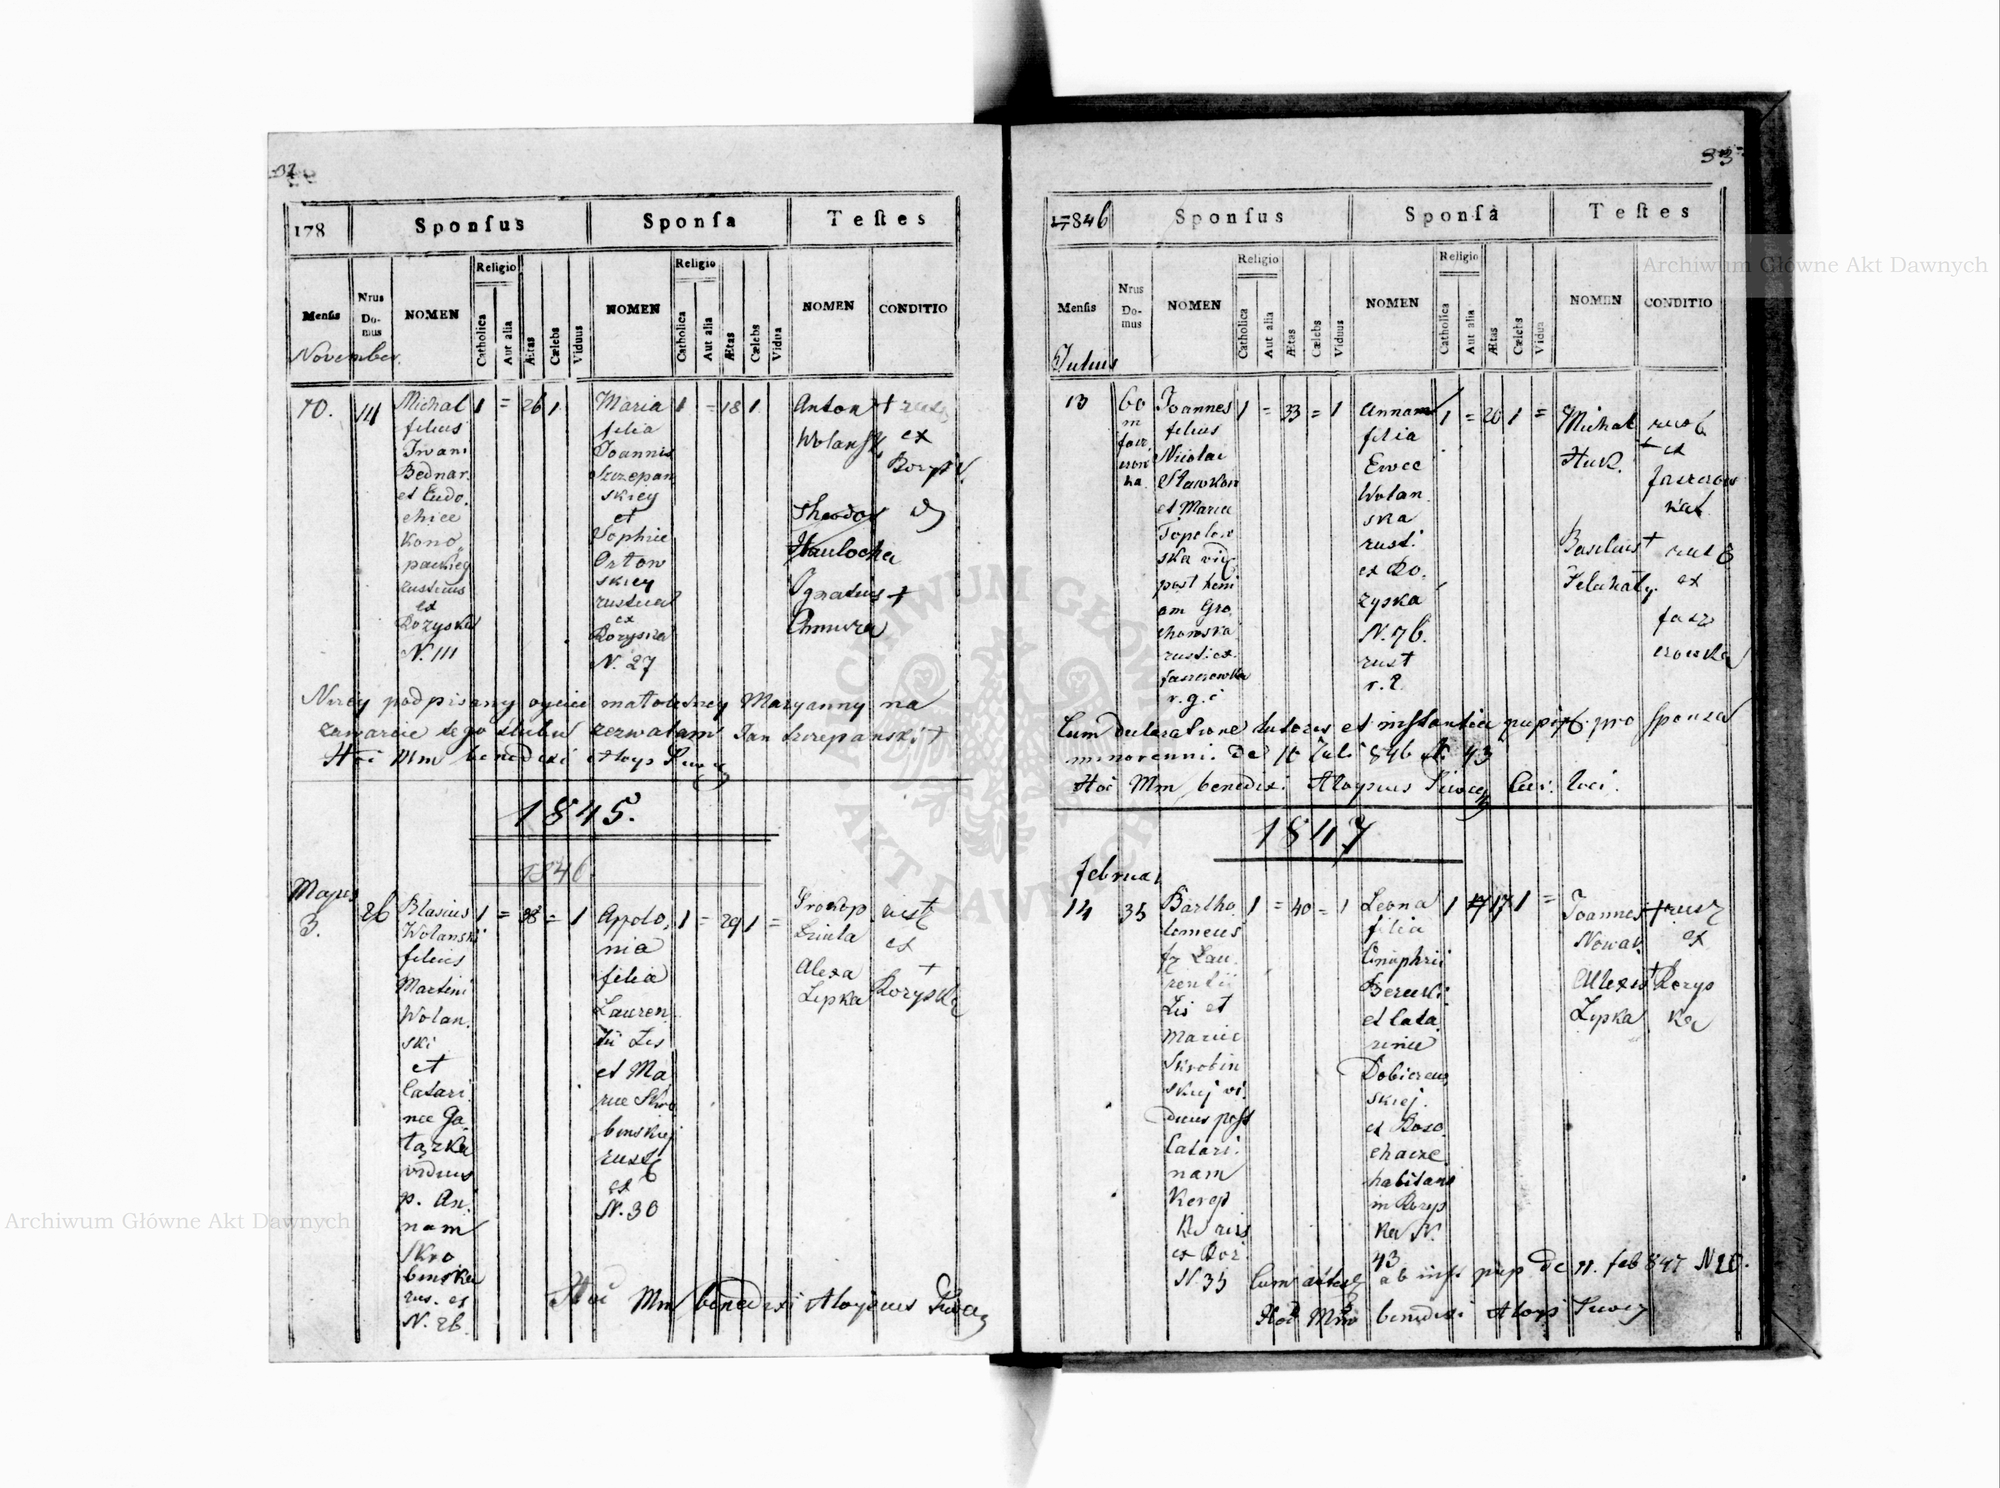 32
178
Sponsus
Sponsa
Testes
Religio
Religio
Mensis
Nrus Domus
NOMEN
Catholica
Aut alia
Ætas
Cælebs
Viduus
NOMEN
Catholica
Aut alia
Ætas
Cælebs
Vidua
NOMEN
CONDITIO
November.
10.
111
Michal
filius
Iwani
Bednar.
et Eudo.
chiee
Kono„
packiey
rusticus
ex
Rożyska
N. 111
1
=
26
1
Maria
filia
Joannis
Szczepan
skiey
et
Sophiee
Orton
skiey
rustica
ex
Rożyska
N. 27
1
=
18
1
Anton +
Wolansk
ex
Theodor
Hawlocha
Ignatius +
Chmura
Niżey podpisany oyciec małoletney Maryanny na
zawarcie tego ślubu zezwalam Jan Szczepanski +
Hoc Mm benedixi Aloys
1845.
1846.
Majus
3.
26
Blasius
Wolanski
filius
Martini
Wolan.
ski
et
Catari
nee Ga
tązka
viduus
p. An.
nam
Skro
binska
rus. ex
N. 26.
1
=
38
=
1
Appolo,
nia
filia
Lauren
tii Lis
et Ma
riae Skro
binskiej
rust
ex
N. 30
1
=
29
1
=
Prokop
rust
ex
Alexa
Lepka
Rożyska
Hoc Mm benedixi Aloysius
33
1846
Sponsus
Sponsa
Testes
Religio
Religio
Mensis
Nrus Domus
NOMEN
Catholica
Aut alia
Ætas
Cælebs
Viduus
NOMEN
Catholica
Aut alia
Ætas
Cælebs
Vidua
NOMEN
CONDITIO
Julius
13
60
in
Joannes
filius
Nicolai
Slawkow
et Maria
Topolow
ska vid
post
am Gro
chowska
rusti. ex.
r. g. c
1
=
33
=
1
Annam
filia
Ewee
Wolan.
ska
rusti
ex Ro.
zyska
N. 76.
rust
r. l.
1
=
20
1
=
Michal
Huk.
ex
Basilius +
ex
Cum declaratione tutoris et instantia pupil. pro sponsa
minorenni. De 10 Juli 846 N. 43
Hoc Mm benedixi Aloysius Cur. loci.
1847
Februar
14
35
Bartho
lomeus
f. Lau.
rentii
Lis et
Mariee
Skrobin
skiej vi.
duus post
Catari.
nam
ex Roz.
N. 35
1
=
40
=
1
Leona
filia
Onuphrii
Bereski
et Cata
rinee
skiej.
habitans
in Rożys
ka N.
43
1
17
1
=
Joannes + rust
Nowak ex
Alexis + Rożys
Lepka ka
Cum ab inst pup De 11. feb 847 N 20.
Hoc Mm benedixi Aloys
Archiwum Główne Akt Dawnych
Archiwum Główne Akt Dawnych
ARCHIWUM GŁÓWNE AKT DAWNYCH